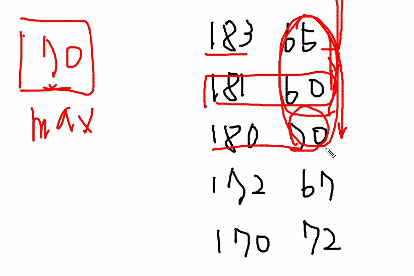 70
max
183 65
181 60
180 70
172 67
170 72